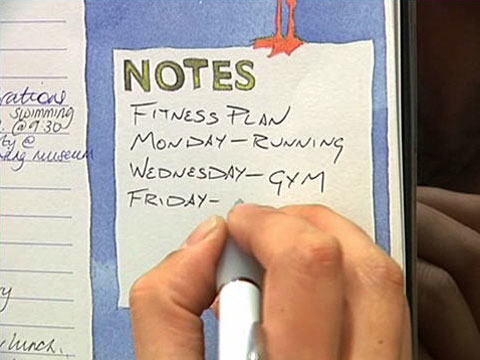 rations
swimming
@ 9:30
ty @
museum
lunch.
NOTES
FITNESS PLAN
MONDAY – RUNNING
WEDNESDAY – GYM
FRIDAY –